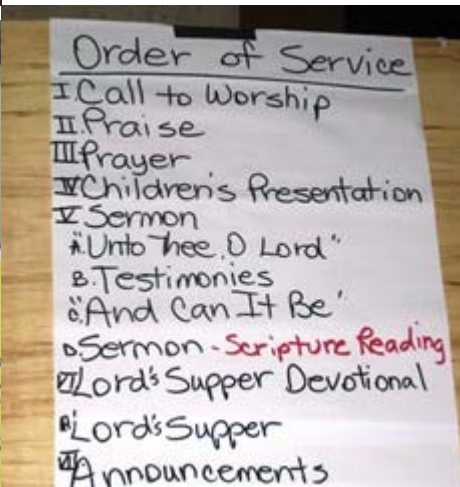 Order of Service
I. Call to Worship
II. Praise
III Prayer
IV Children's Presentation
V Sermon
A. "Unto Thee, O Lord"
B. Testimonies
C. "And Can It Be"
D. Sermon - Scripture Reading
VI Lord's Supper Devotional
B. Lord's Supper
VII Announcements